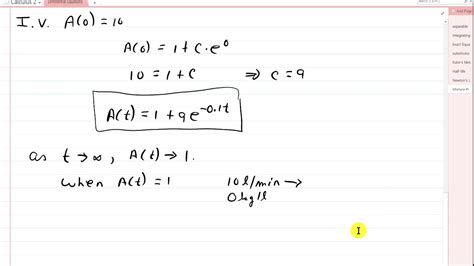 Calculus 2
Differential Equations
Add Page
separable
Integrating
Exact Equa
substitutio
Euler's Met
Half life
Newton's L
Mixture Pr
I.V. A(0) = 10
A(0) = 1 + C·e^0
10 = 1 + C ⇒ C = 9
A(t) = 1 + 9e^{-0.1t}
as t → ∞, A(t) → 1.
when A(t) = 1 10 l/min →
0 kg/l